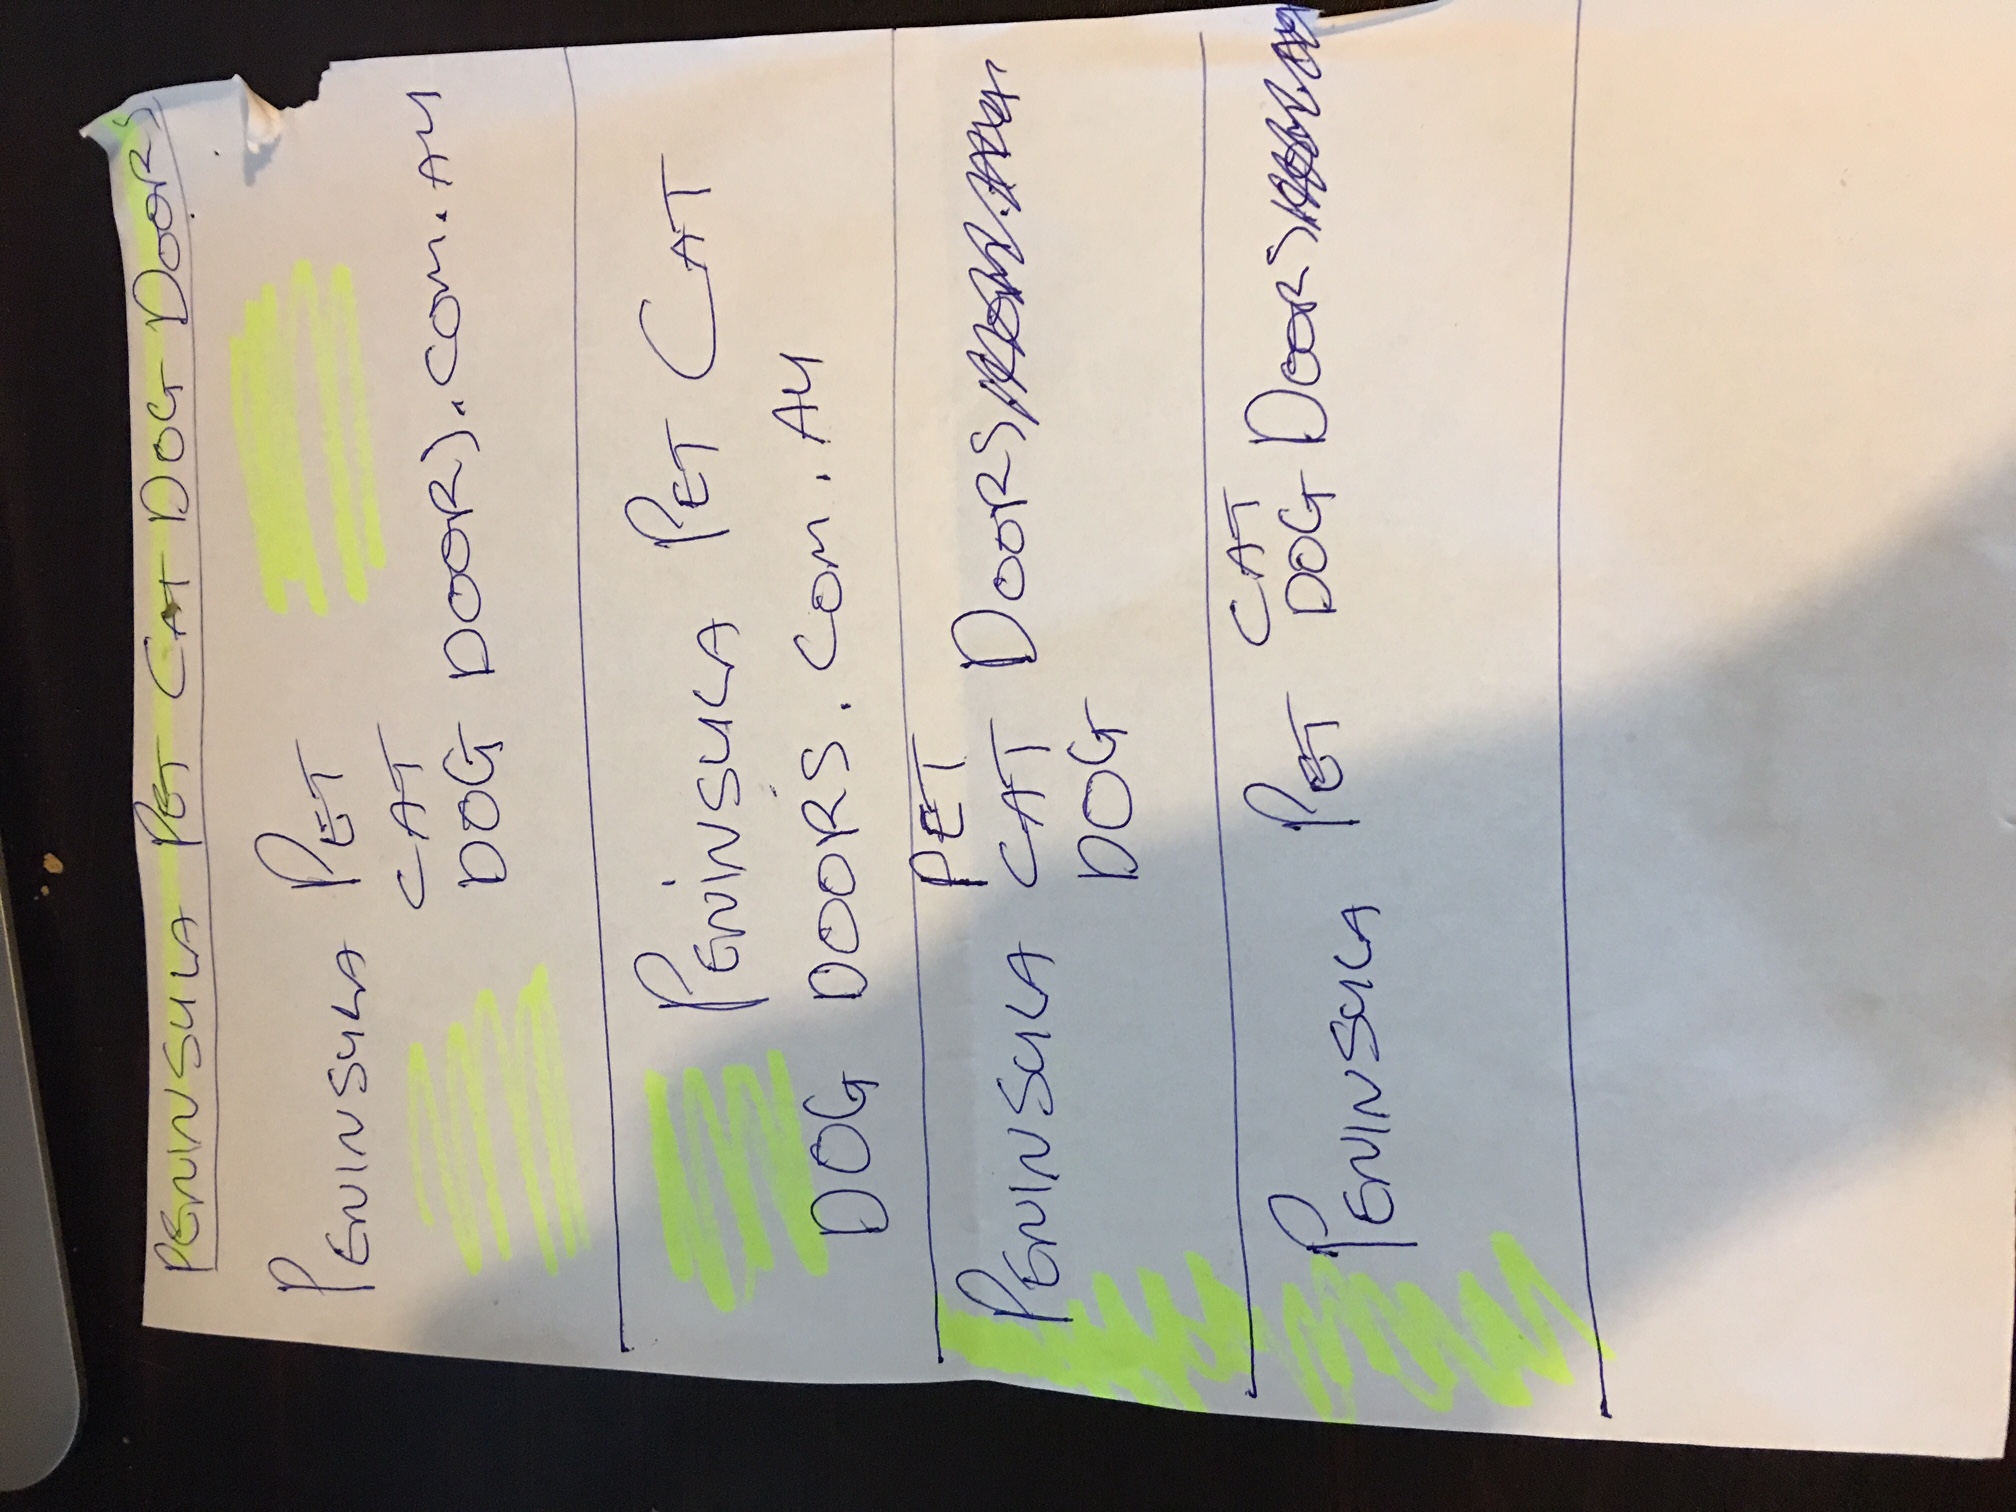 PENINSULA PET CAT DOG DOORS
PENINSULA PET
CAT
DOG DOORS.COM.AU
PENINSULA PET CAT
DOG DOORS.COM.AU
PET
PENINSULA CAT DOORS
DOG
CAT
PENINSULA PET DOG DOORS